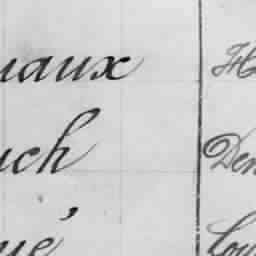 uaux
uch
ué
H
Den
Lou